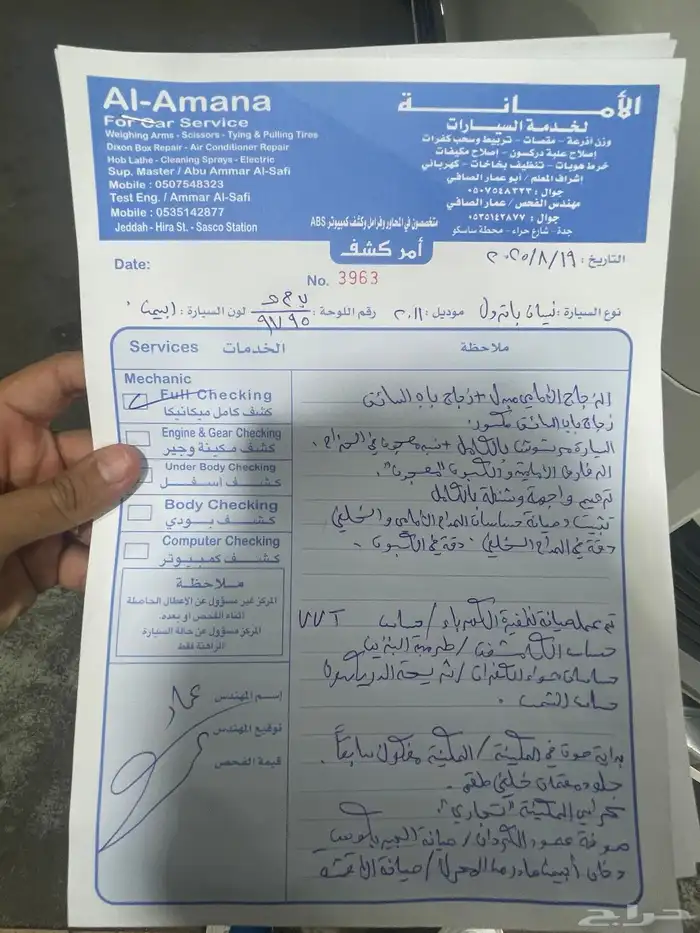 Al-Amana
For Car Service
Weighing Arms - Scissors - Tying & Pulling Tires
Dixon Box Repair - Air Conditioner Repair
Hob Lathe - Cleaning Sprays - Electric
Sup. Master / Abu Ammar Al-Safi
Mobile : 0507548323
Test Eng. / Ammar Al-Safi
Mobile : 0535142877
Jeddah - Hira St. - Sasco Station
الأمـانـة
لخدمة السيارات
وزن أذرعة - مقصات - تربيط وسحب كفرات
إصلاح علبة دركسون - إصلاح مكيفات
خرط هوبات - تنظيف بخاخات - كهربائي
إشراف المعلم / أبو عمار الصافي
جوال : ٠٥٠٧٥٤٨٣٢٣
مهندس الفحص / عمار الصافي
جوال : ٠٥٣٥١٤٢٨٧٧
جدة - شارع حراء - محطة ساسكو
متخصصون في المحاور وفرامل وكشف كمبيوتر ABS
أمر كشف
Date:
التاريخ : ٢٠٢٥/٨/١٩
No. 3963
نوع السيارة : نيسان باترول موديل : ٢٠١١ رقم اللوحة : ٩٧٩٥ لون السيارة :
Services الخدمات
ملاحظة
Mechanic
Full Checking
كشف كامل ميكانيكا
Engine & Gear Checking
كشف مكينة وجير
Under Body Checking
كشف أسفل
Body Checking
كشف بودي
Computer Checking
كشف كمبيوتر
ملاحظة
المركز غير مسؤول عن الأعطال الحاصلة
أثناء الفحص أو بعده.
المركز مسؤول عن حالة السيارة
الراهنة فقط
إسم المهندس عمار
توقيع المهندس
قيمة الفحص
الزجاج الأمامي مبدل + زجاج باب السائق
زجاج باب السائق مكسور.
السيارة مرشوش بالكامل
ترميم واجهة وشنطة بالكامل
تثبيت وصيانة حساسات الصدام الأمامي والخلفي
دقة في الصدام الخلفي. دقة في الكبوت.
تم عمل صيانة لظفيرة الكهرباء / حساس VVT
حساس الكلمشفت / طرمبة البنزين
حساسات هواء الكفرات
بداية صوت في المكينة / المكينة مفكوك سابقاً.
جلود مقصات خلفي طقم.
كراسي المكينة "تجاري".
صوفة عمود الكردان
دخان أبيض
حراج